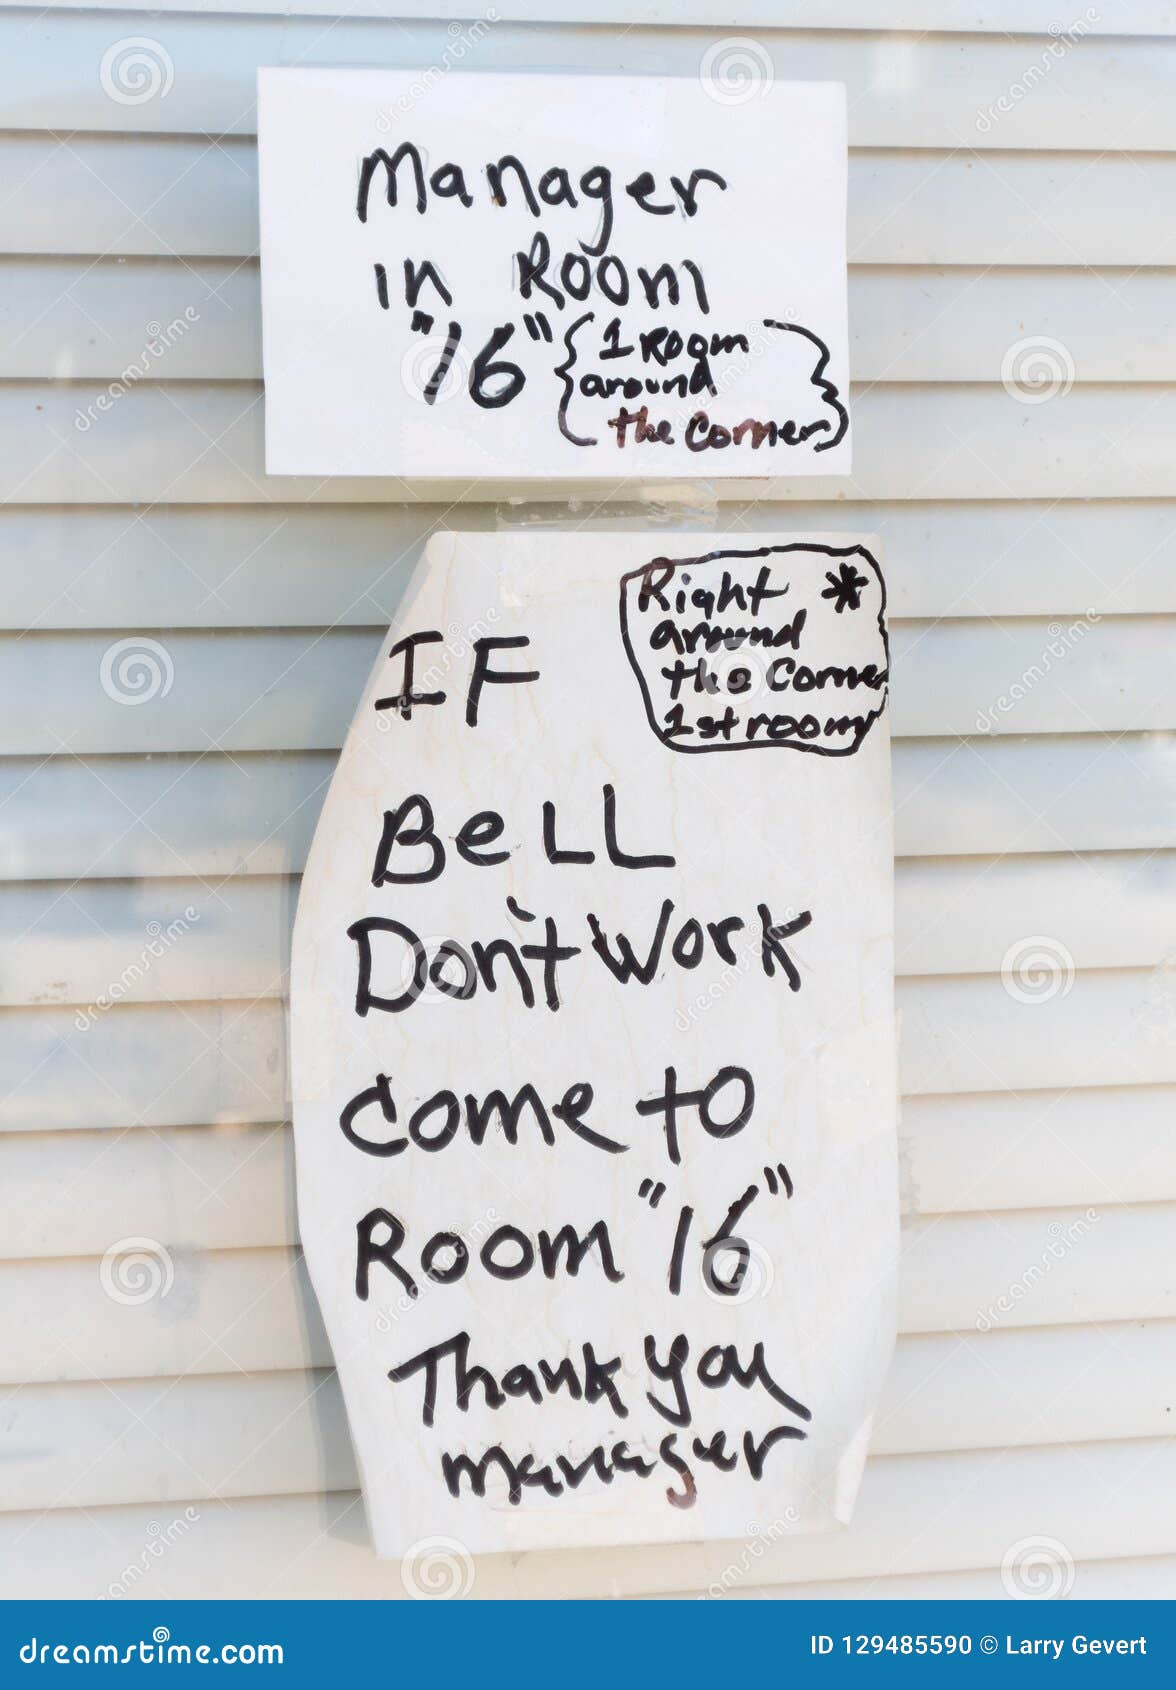 Manager
in Room
"16" { 1 Room
around
the Corner }
Right *
around
the Corner
1st room
IF
BeLL
Don't Work
Come to
Room "16"
Thank you
manager
dreamstime.com
ID 129485590 © Larry Gevert